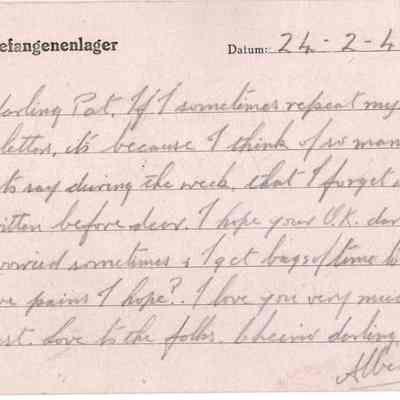 efangenenlager Datum: 24-2-4
darling Pat, If I sometimes repeat my
letters, it's because I think of so man
to say during the week, that I forget
itten before dear. I hope your O.K. dar
worried sometimes & I get bags of time to
ve pains I hope?. I love you very muc
st. Love to the folks. Cheerio darling
Albe